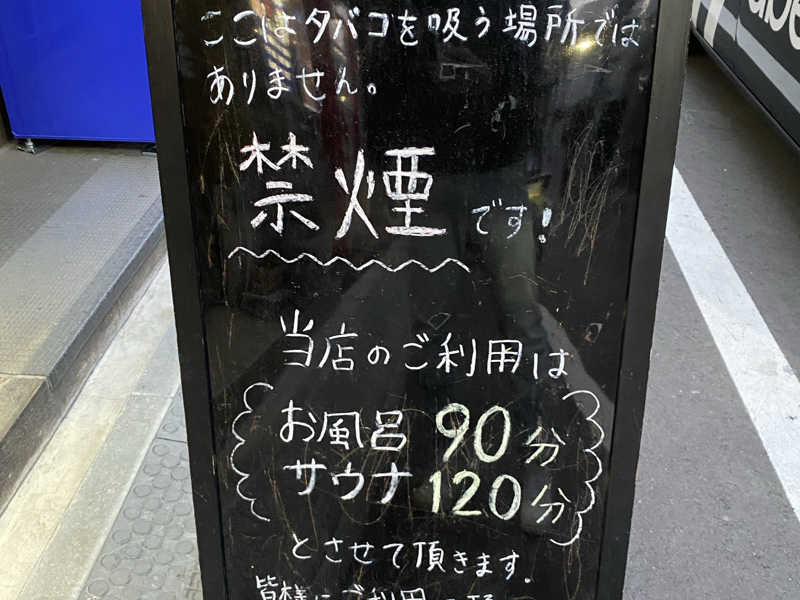 ここはタバコを吸う場所では
ありません。
禁煙です!
当店のご利用は
お風呂 90分
サウナ 120分
とさせて頂きます.
皆様にご利用